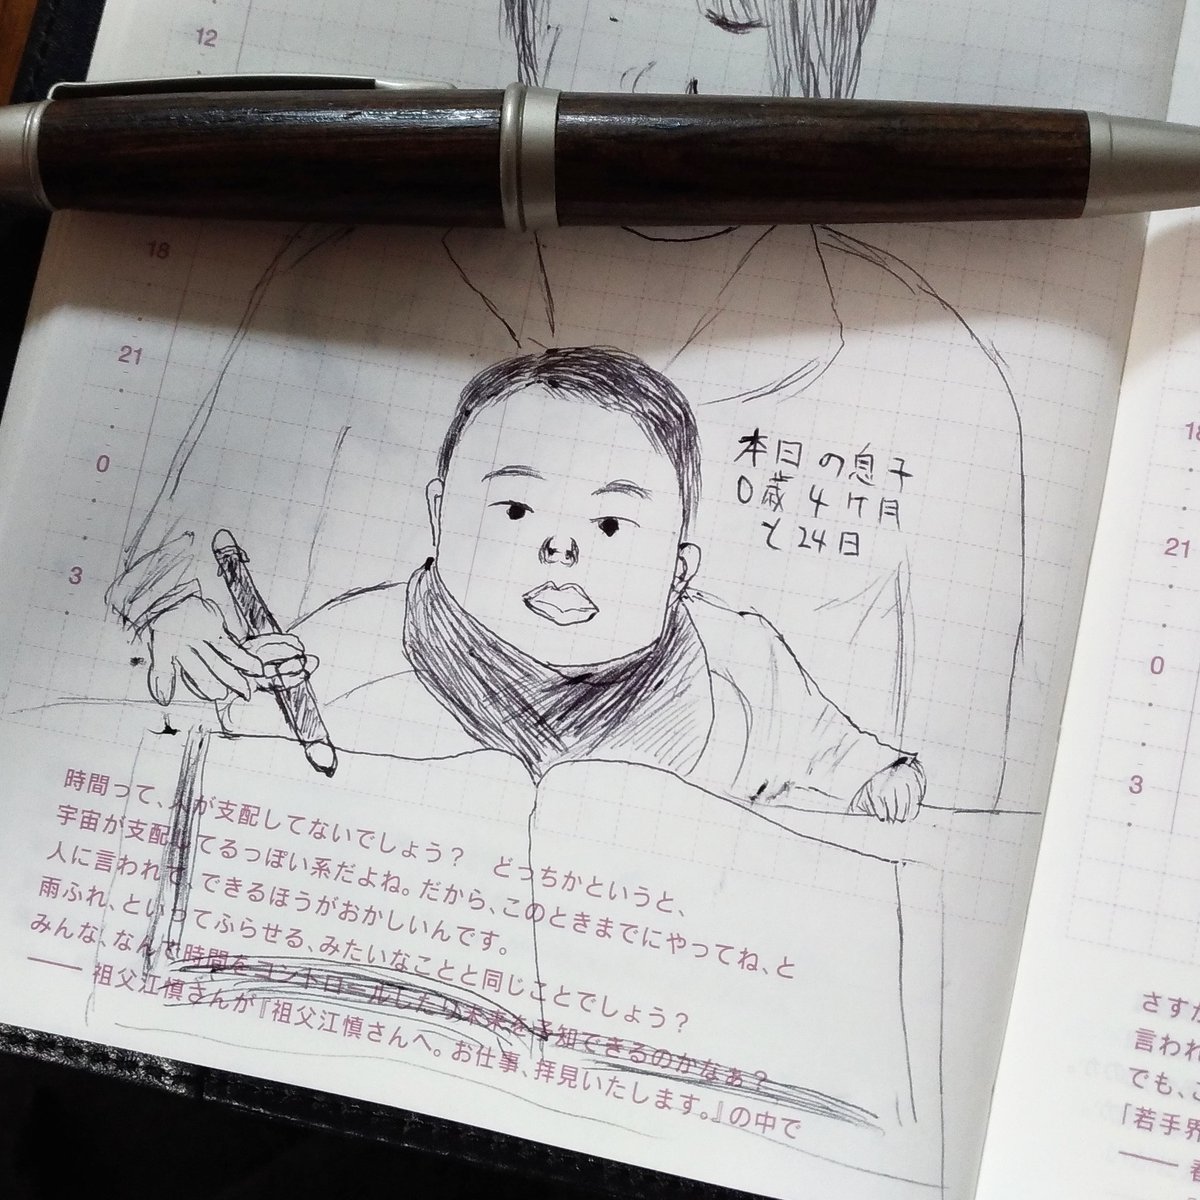 12
18
21
0
3
本日の息子
0歳4ヶ月
と24日
時間って、人が支配してないでしょう？ どっちかというと、
宇宙が支配してるっぽい系だよね。だから、このときまでにやってね、と
人に言われて、できるほうがおかしいんです。
雨ふれ、といってふらせる、みたいなことと同じことでしょう？
みんな、なんで時間をコントロールしたり未来を予知できるのかなぁ？
—— 祖父江慎さんが『祖父江慎さんへ。お仕事、拝見いたします。』の中で
18
21
0
3
さすが
言われ
でも、
「若手界